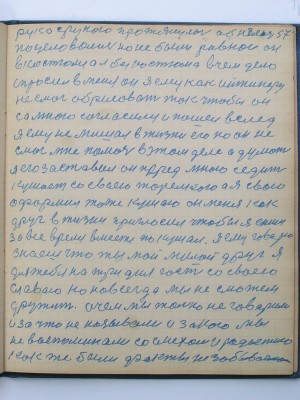 руко струкого протянулся обняли 57
поцеловались но не были равной он
в костюмах я без костюма в чем дело
спросил в меня он я ему как и
не смог обрисовать так чтобы он
со мною согласился и пошел вслед
я ему не мешал в жизни его но он не
смог мне помочь в этом деле а думать
я его заставил он перед мною сидит
кушает со своею торелкою а я свою
тоже кушаю он меня как
друг в жизни пригласил чтобы я с ним
за все время вместе покушал. Я ему говорю
знаеш что ты мой милой друг я
для тебя на три дня гость со своею
славаю но навсегда мы не сможем
дружить. о чем мы только не говорили
и за что не называли и за кого мы
не воспоминали со смехом и радостию
как же были факты не забываем